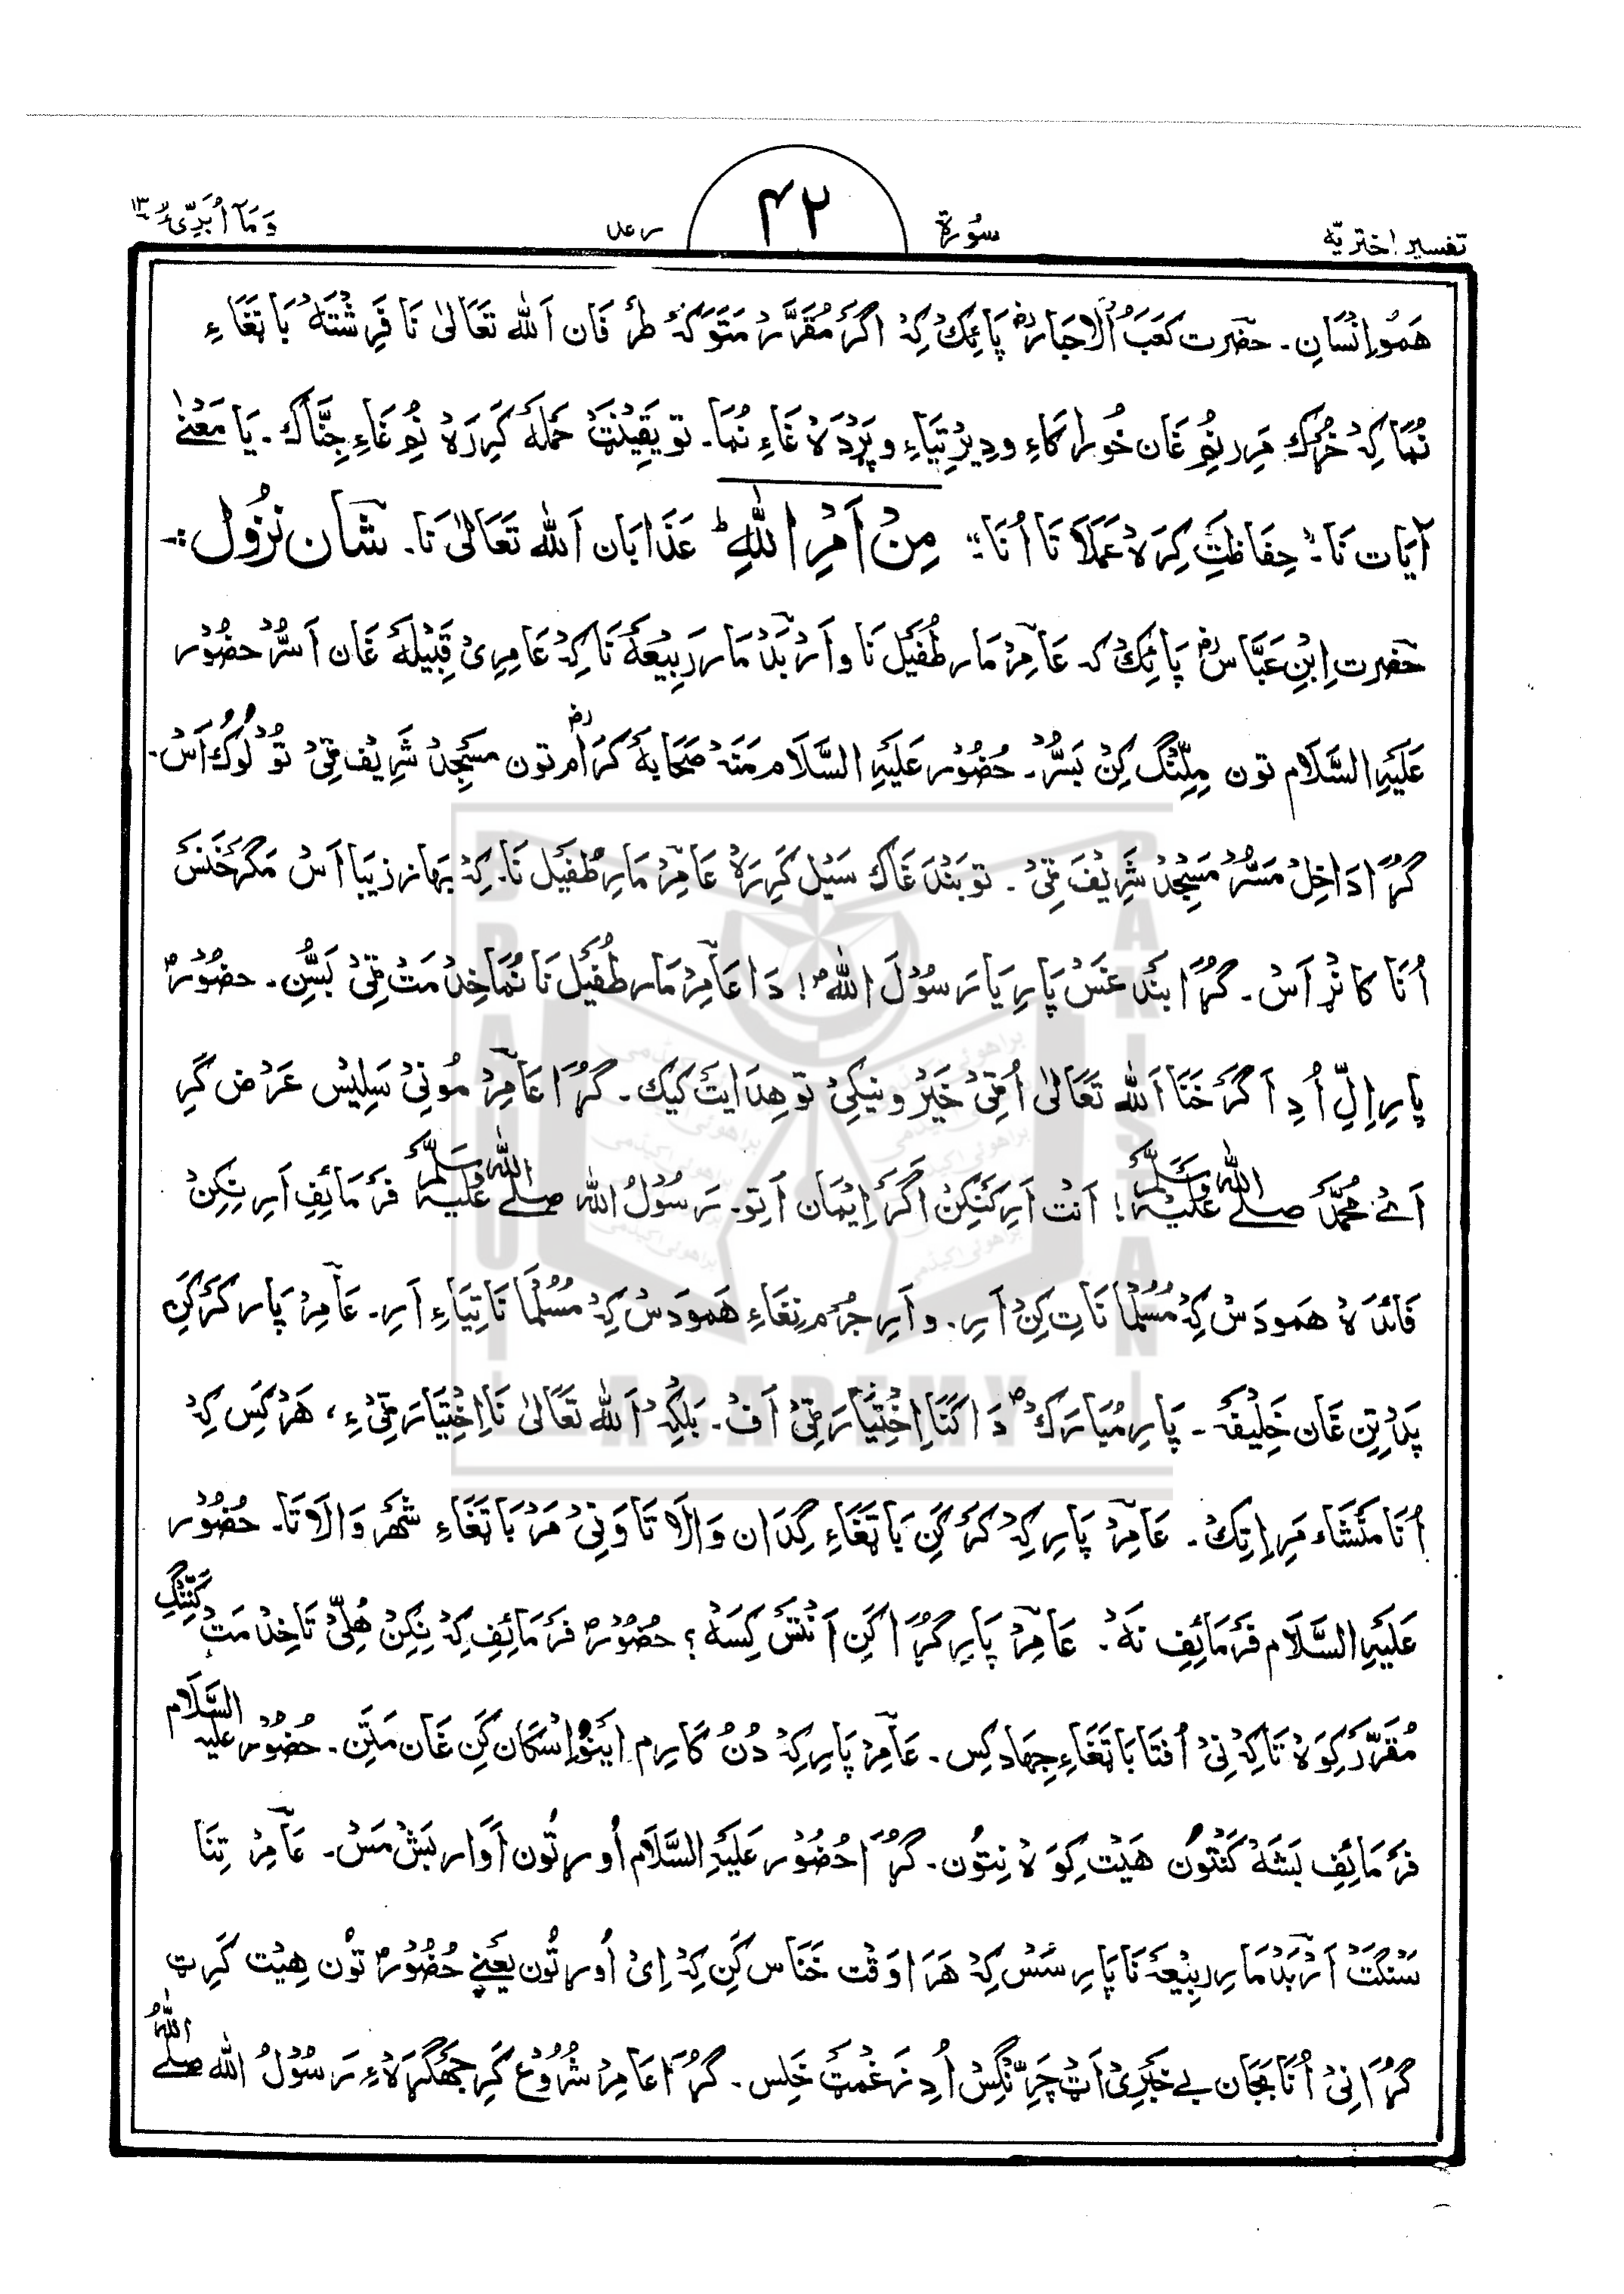 تفسیر اختریّه سُورۃ ۴۲ رعد وَمَآ اُبَرِّئُ ۱۳
هَمُو اِنْسَان۔ حضرت کَعَبُ الْاحبَار رض پَائِک کِہ اگرَ مُقَرَّر مَتَوَکہَ طرَفَان اَللہ تَعَالیٰ نَا فَرِشْتَہ بَاتغَاءِ
نُمَا کِہ خُرُک مَرِر نُم غَان خُوراکَاءِ و دِیرْتِیَاءِ و پَرْدَہ غَاءِ نُمَا۔ تو یَقِیْنَتْ حَملہَ کَرِرَہ نُم غَاءِ جِنَّاک۔ یَا مَعْنیٰ
آیَات نَا۔ حِفَاظَتِ کِرَہ عَمَلاَ تَا اُنَا؞ مِنْ اَمْرِ اللّٰہِ ط عَذَابَان اَللہ تَعَالیٰ نَا۔ شَان نزُول :۔
حَضرت اِبْنِ عَبَّاس رض پَائِک کہ عَامِرْ مَار طُفَیل نَا و اَرْبَدْ مَار رَبِیعَہ نَا کِہ عَامِرِیْ قَبِیْلہَ غَان اَسُّر حضُوْر
عَلَیہِ السَّلَام تون مِلِّنِنگ کِنْ بَسُّر۔ حُضُوْر عَلَیہِ السَّلَام مَنَہ صَحَابہَ کَرَام رض تون مسَجِدْ شَرِیف ٹِیْ تَوْ لُوک اَسْ۔
گُڑَا دَاخِل مَسُّر مَسْجِدْ شَرِیْف ٹِیْ۔ تو بَنْدَغَاک سَیل کَرِرَہ عَامِرْ مَار طُفَیل نَا۔ کِہ بَھَاز زیبَا اَسْ مَگر خَنَسَ
اُنَا کانْڑ اَسْ۔ گُڑَا بَنَدَغَسْ پَارِ یَا رَسُوْلَ اللہ! دَا عَامِرْ مَار طُفَیْل نَا نُمَا خِدْمَتْ ٹِیْ بَسُّنِ۔ حضُوْر
پارِ اِلِّ اُدِ اَگرَ خَنَا اَللہ تَعَالیٰ اُٹِیْ خَیْر و نیکِیْ تو ھِدَایَت کیک۔ گُڑَا عَامِرْ مُونِیْ سَلِیس عَرْض کَرِ
اَے مُحَمَّد صلی اللہ علیہ وسلم! اَنتْ اَرِ کَنَکِنْ اَگرَ اِیْمَان اَتِو۔ رَسُوْلُ اللہ صلی اللہ علیہ وسلم فَرَمَائِف اَرِ نِکِنْ
فَائدَہ ھَمودَسْ کِہ مُسُلمَا نَاتِ کِنْ اَرِ۔ و اَرِ جُرُم نِغَاءِ ھَمودَسْ کِہ مُسُلمَا نَاتِیَاءِ اَرِ۔ عَامِرْ پَار کَرَ کَنِ
پَدْ تِن غَان خَلِیفہ۔ پَارِ مُبَارَک دَا کَنَا اِخْتِیَار ٹِیْ اَفْ۔ بَلْکِہ اَللہ تَعَالیٰ نَا اِخْتِیَار ٹِیْءِ، ھَرْکَس کِہ
اُنَا مَنْشَاء مَرِ اِتِک۔ عَامِرْ پَارِ کِہ کَرَ کَنِ بَاتغَاءِ گِدَان وَالَا تَا وَ نِیْ مَرْ بَاتغَاءِ شَھَر وَالَاتَا۔ حُضُوْر
عَلَیہِ السَّلَام فَرَمَائِفِ نَہ۔ عَامِرْ پَارِ گُڑَا کَنِ اَنْتَسْ کِسَہ؟ حُضُوْر فَرَمَائِفِ کِہ نِکِنْ ھُلِّیْ تَا خِدْمَتْ کَنِّنگِ
مُقَرَّر کِوَہ تَاکِہ نِیْ اُفتَا بَاتغَاءِ جِھَاد کِس۔ عَامِرْ پَارِ کِہ دُنْ کَارِم اَیْنُو اِسْکَان کَنِ غَان مَتِّن۔ حُضُوْر علیہ السَّلَام
فَرَمَائِفِ بَشَہ کَنْتُون ھَیْت کِوَہ نِتُون۔ گُڑَا حُضُوْر عَلَیہِ السَّلَام اُورتُون اَوَار بَشْ مَسْ۔ عَامِرْ تِنَا
سَنْگتْ اَرْبَدْمَار رَبِیْعَہ نَا پَارِسُسْ کِہ ھَرَا وَقْت خَنَاس کَنِ کِہ اِیْ اُورتُون یَعنِے حُضُوْر تُون ھِیْت کَرِٹ
گُڑَا نِیْ اُنَا بَجَان بے خَبَرِیْ اَٹ چَرِّنگِسْ اُدِ زَغْمَٹْ خَلِس۔ گُڑَا عَامِرْ شُرُوْع کَرِ جَھَگڑَاہ ءِ رَسُوْلُ اللہ صلی اللہ